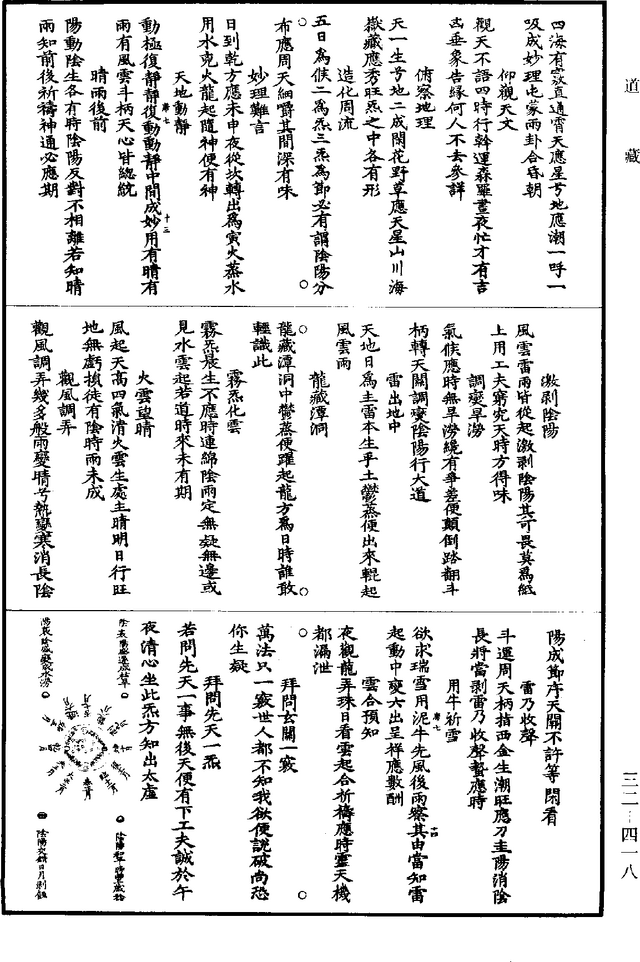 道藏
四海有竅直通霄天應星兮地應潮一呼一
吸成妙理屯蒙兩卦合昏朝
仰觀天文
觀天不語四時行斡運森羅晝夜忙才有吉
凶垂象告緣何人不去參詳
俯察地理
天一生兮地二成閑花野草應天星山川海
嶽藏應秀旺炁之中各有形
造化周流
五日為候二為炁三炁為節必有謂陰陽分
布應周天細嚼其間深有味
妙理難言
日到乾方應未申夜從坎轉出為寅火蒸水
用水克火龍起隨神便有神
天地動靜
動極復靜靜復動動靜中間成妙用有晴有
雨有風雲斗柄天心皆總統
晴雨後前
陽動陰生各有時陰陽反對不相離若知晴
雨知前後祈禱神通必應期
十三
激剥陰陽
風雲雷雨皆從起激剥陰陽其可畏莫為紙
上用工夫窮究天時方得味
調燮旱澇
氣候應時無旱澇纔有爭差便顛倒踏翻斗
柄轉天關調燮陰陽行大道
雷出地中
天地日為主雷本生乎土鬱蒸便出來輥起
風雲雨
龍藏潭洞
龍藏潭洞中鬱蒸便躍起龍方為日時誰敢
輕議此
霧炁化雲
霧炁晨生不應時連綿陰雨定無疑無邊或
見水雲起若道時來未有期
火雲望晴
風起天高四氣清火雲生處主晴明日行旺
地無虧損徒有陰時雨未成
觀風調弄
觀風調弄幾多般雨變晴兮熱變寒消長陰
陽成節序天關不許等閑看
雷乃收聲
斗運周天柄指西金生潮旺應刀圭陽消陰
長將當剥雷乃收聲蟄應時
用牛祈雪
欲求瑞雪用泥牛先風後雨察其由當知雷
起動中變六出呈祥應數酬
雲合預知
夜觀龍弄珠日看雲起合祈禱應時靈天機
都漏泄
拜問玄關一竅
萬法只一竅世人都不知我欲便說破尚恐
你生疑
拜問先天一炁
若問先天一事無後天便有下工夫誠於午
夜清心坐此炁方知出太虛
三二—四一八